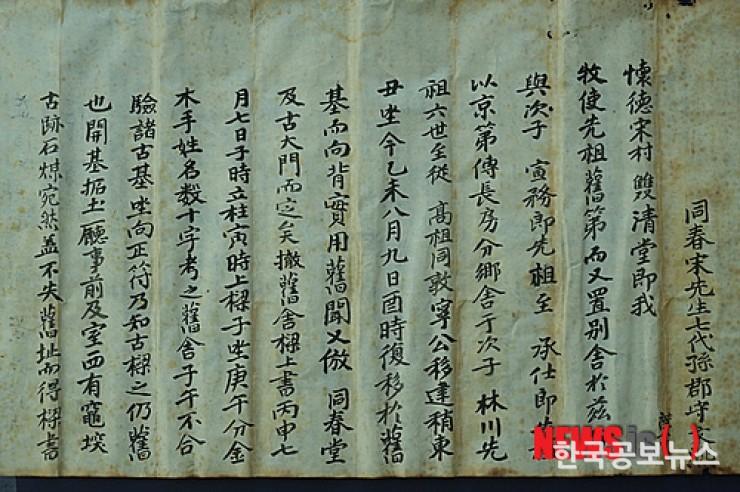 同春宋先生七代孫郡守
懷德宋村 雙清堂即我
牧使先祖舊第而又置別舍於茲
與次子 寅務即先祖至 承仕郎
以京第傳長房分鄉舍于次子 林川先
祖六世至從 高祖同敦寧公移建稍東
丑坐今乙未八月九日酉時復移於舊
基而向背實用舊聞又倣 同春堂
及古大門而定矣撤舊舍樑上書丙申七
月七日子時立柱寅時上樑子坐庚午分金
木手姓名數十字考之舊舍子午不合
驗諸古基坐向正符乃知古樑之仍舊
也開基拓土廳事前及室西有竈埃
古跡石煤宛然盖不失舊址而得樑書
NEWSis( )
한국공보뉴스